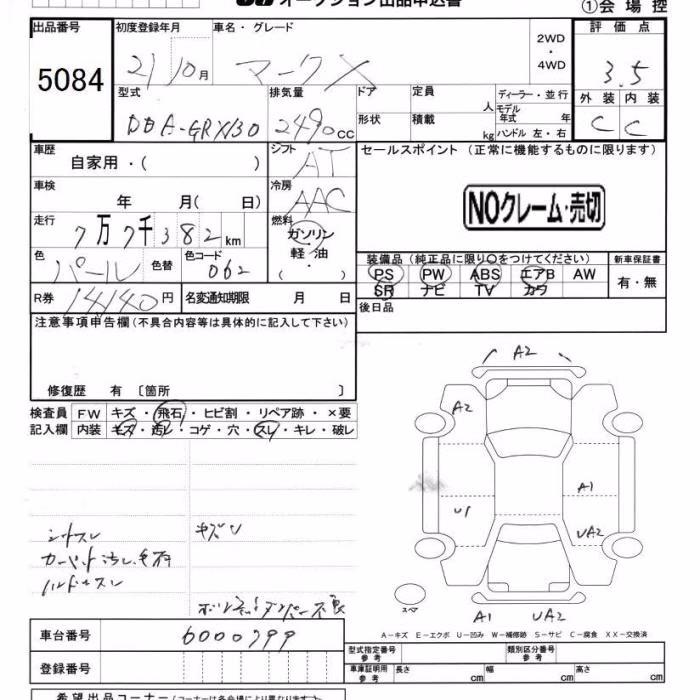 オークション出品申込書
①会場控
出品番号
5084
初度登録年月
21 10月
車名・グレード
マークX
2WD
・
4WD
評価点
3.5
外装 内装
C C
型式
DBA-GRX130
排気量
2490cc
ドア
定員
人
形状
積載
kg
ディーラー・並行
モデル年式 年
ハンドル 左・右
車歴
自家用・( )
シフト
AT
車検
年 月( 日)
冷房
AAC
走行
7万7千382km
燃料
ガソリン
軽油
・
( )
色
パール
色替
色コード
062
R券
14140円
名変通知期限 月 日
セールスポイント(正常に機能するものに限ります)
NOクレーム・売切
装備品(純正品に限り○をつけてください)
新車保証書
PS PW ABS エアB AW
SR ナビ TV カワ
有・無
後日品
注意事項申告欄(不具合内容等は具体的に記入して下さい)
修復歴 有〔箇所 〕
検査員
記入欄
FW キズ・飛石・ヒビ割・リペア跡・×要
内装 キズ・汚レ・コゲ・穴・スレ・キレ・破レ
シートスレ
キズU
ハンドルスレ
A2
A2
A1
U1
UA2
スペア
A1 UA2
A-キズ E-エクボ U-凹み W-補修跡 S-サビ C-腐食 XX-交換済
車台番号
6000799
登録番号
型式指定番号
参考
類別区分番号
参考
車庫証明用
参考
長さ cm
幅 cm
高さ cm
希望出品コーナー(コーナーは各会場により異なります)